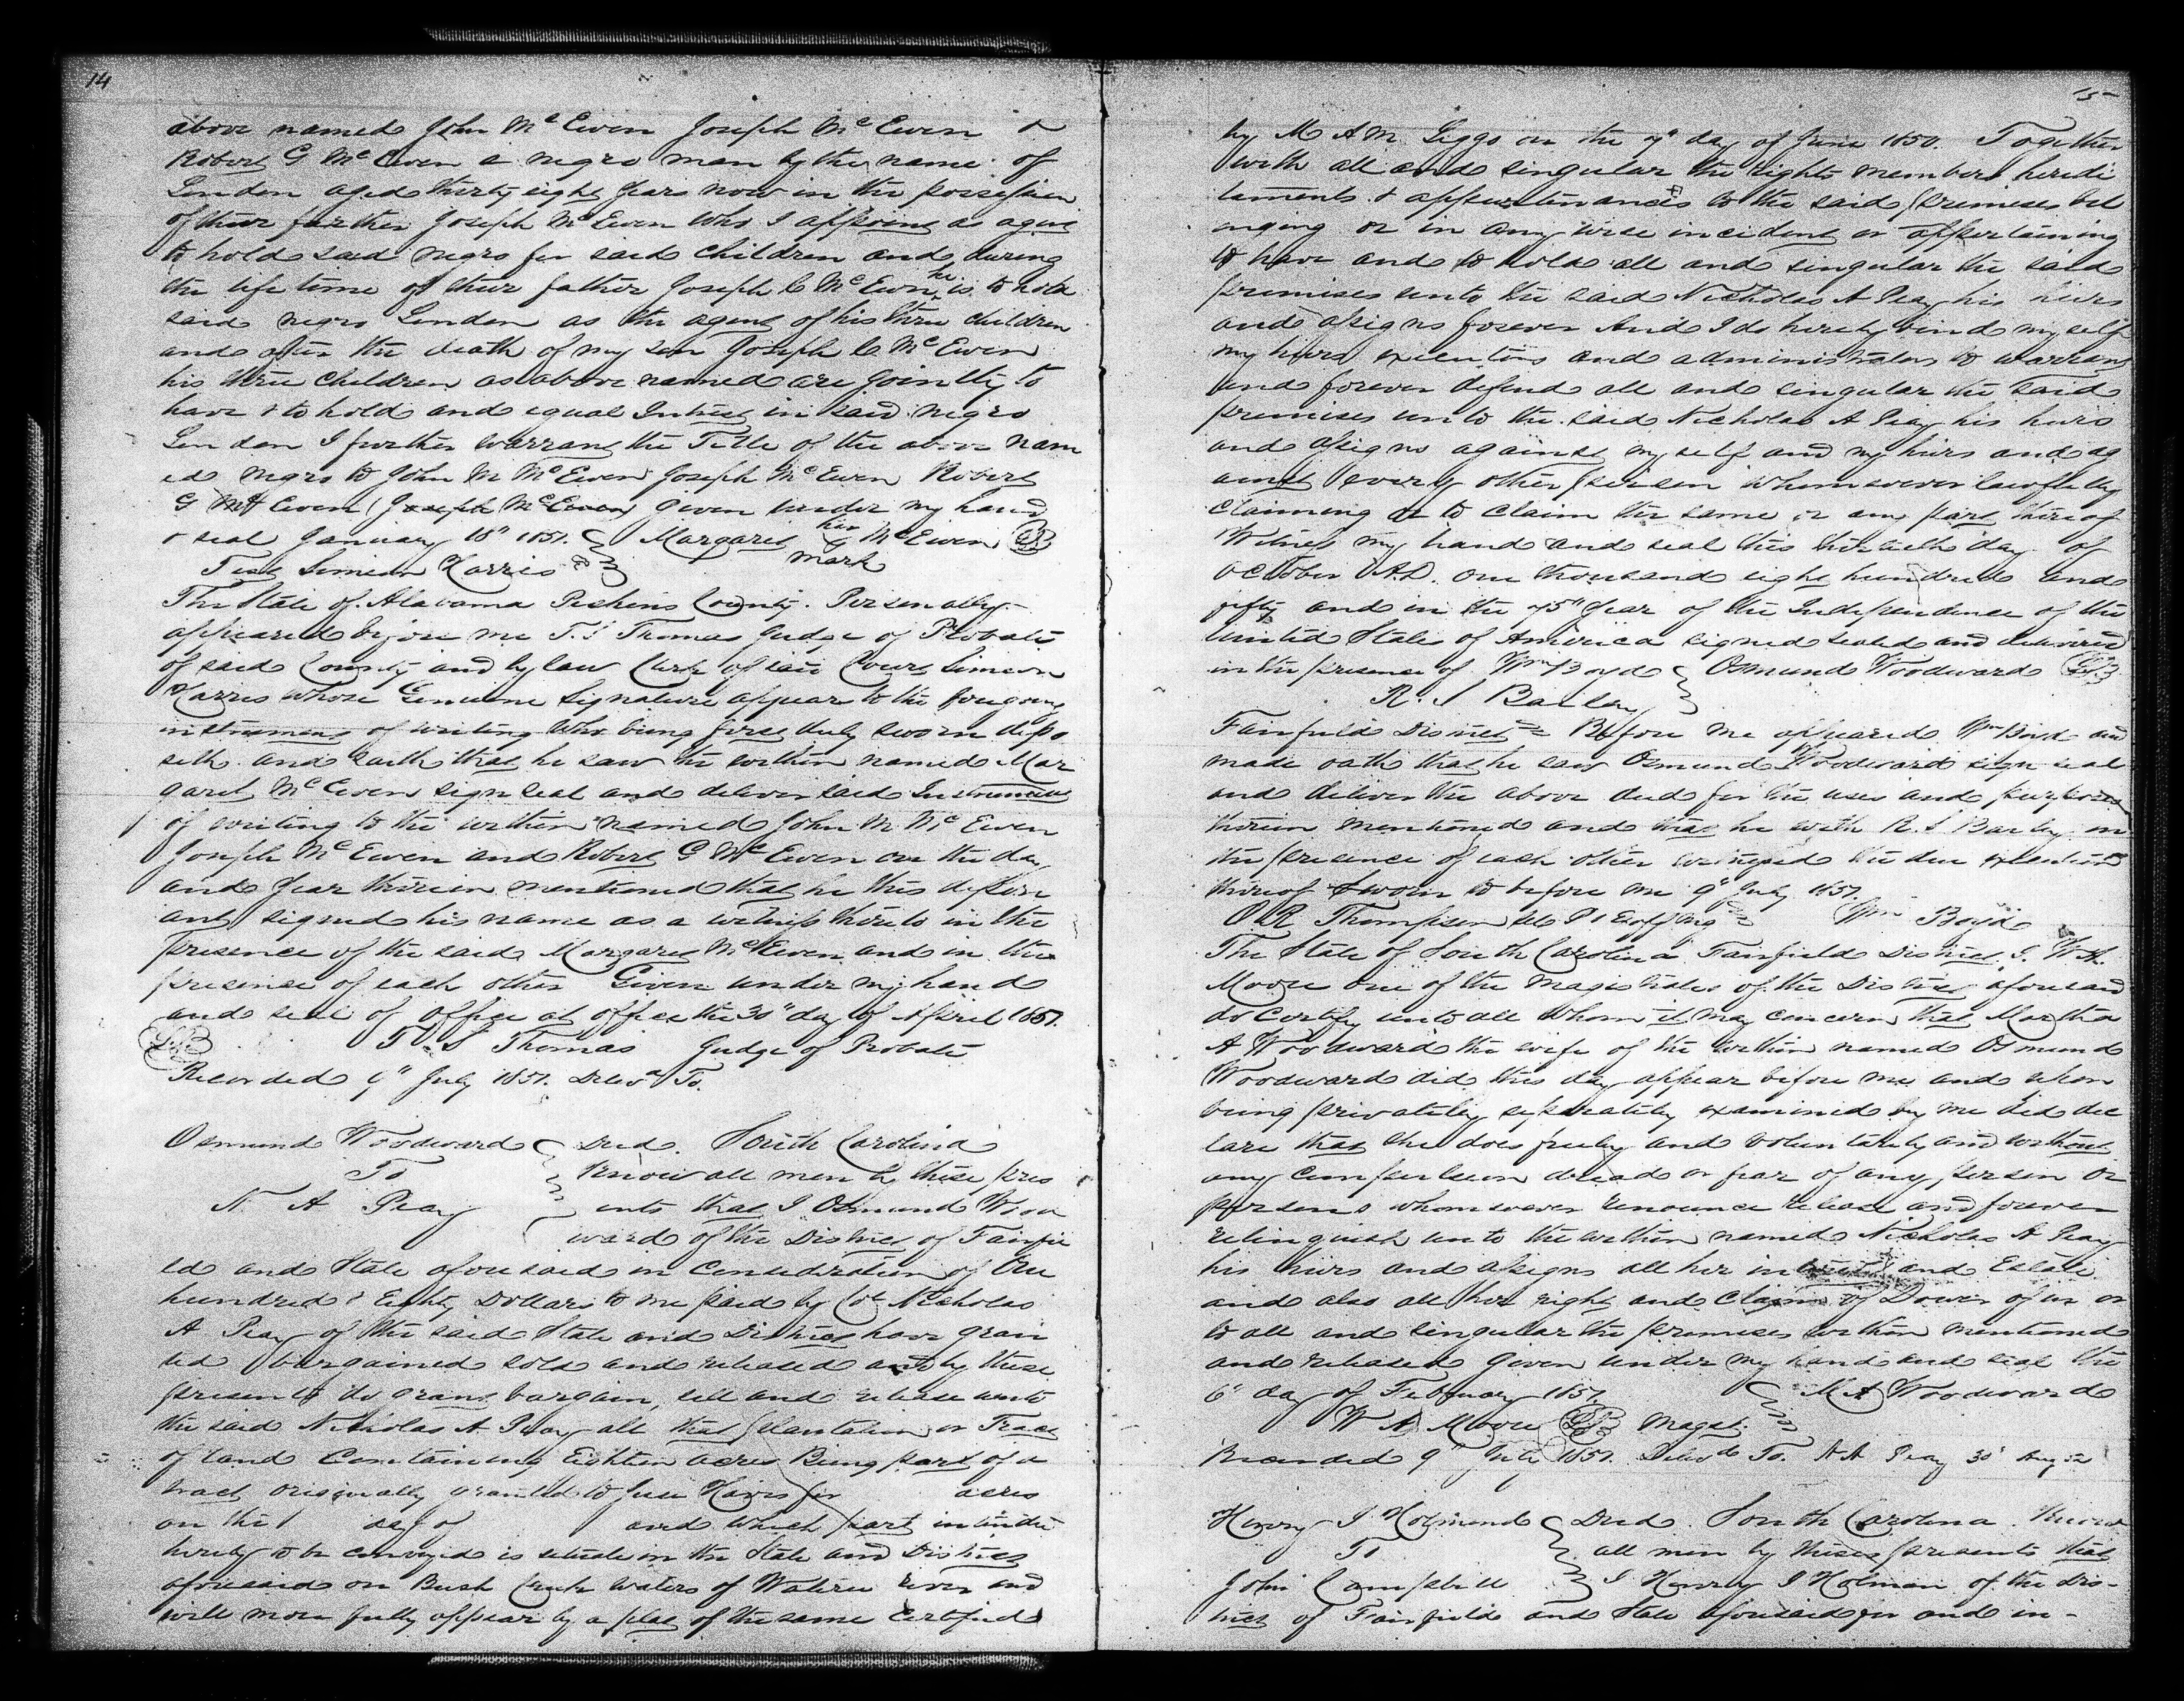 14
above named John Mc Ewen Joseph Mc Ewen &
Robert G Mc Ewen a negro man by the name of
London aged thirty eight years now in the possession
of their farther Joseph Mc Ewen who I appoint as agent
to hold said negro for said children and during
the life time of their father Joseph C Mc Ewen he is to hold
said negro London as the agent of his three children
and after the death of my son Joseph C Mc Ewen
his three children as above named are jointly to
have & to hold and equal Intrest in said negro
London I further warrant the Title of the above nam
ed negro to John M Mc Ewen Joseph Mc Ewen Robert
G Mc Ewen (Joseph Mc Ewen) given under my hand
& seal January 18" 1851. Margaret her Mc Ewen LS
mark
Test Simeon Harris
The State of Alabama Pickens County. Personally
appeared before me T. S Thomas Judge of Probate
of said County and by law Clerk of said Court Simeon
Harris whose Genuine Signature appear to the foregoing
instrument of writing Who being first duly sworn depo
seth and saith that he saw the within named Mar
garet Mc Ewen sign seal and deliver said Instrument
of writing to the within named John M. Mc Ewen
Joseph Mc Ewen and Robert G Mc Ewen on the day
and year therein mentioned that he this depon
ant signed his name as a witness thereto in the
presence of the said Margaret Mc Ewen and in the
presence of each other Given under my hand
and seal of office at office the 30" day of April 1851.
LS T. S Thomas Judge of Probate
Recorded 9" July 1851. Delvd To.
Osmund Woodward Deed. South Carolina
To Know all men by these pres
N. A Peay ents that I Osmund Wood
ward of the District of Fairfie
ld and State aforesaid in Consideration of One
hundred & Eighty Dollars to me paid by Col Nicholas
A Peay of the said State and District have gran
ted bargained sold and released and by these
presents do grant bargain, sell and release unto
the said Nicholas A Peay all that plantation or Tract
of land Containing Eighteen acres Being part of a
tract originally granted to Jesse Havis for acres
on the day of and which part intinded
hereby to be conveyed is situate in the State and District
aforesaid on Bush Creek waters of Wateree River and
will more fully appear by a plat of the same Certified
15
by M A M Liggo on the 7" day of June 1850. Together
with all and singular the rights members heridi
taments & appurtinances to the said premises bel
onging or in any wise incident or appertaining
to have and to hold all and singular the said
premises unto the said Nicholas A Peay his heirs
and assigns forever And I do hereby bind myself
my heirs executors and administrators to warrant
and forever defend all and singular the said
premises unto the said Nicholas A Peay his heirs
and assigns against myself and my heirs and ag
ainst every other person whomsoever lawfully
claiming or to claim the same or any part thereof
Witness my hand and seal this thirtieth day of
october A.D. one thousand eight hundred and
fifty and in the 75" year of the Independence of the
United States of America signed sealed and delivered
in the presence of Wm Boyd Osmund Woodward LS
R. S Barley
Fairfield District Before me appeared Wm Boyd and
made oath that he saw Osmund Woodward sign seal
and deliver the above deed for the uses and purposes
therein mentioned and that he with R. S Barley in
the presence of each other witnessed the due execution
thereof Sworn to before me 9" July 1851.
O. R Thompson Wm Boyd
The State of South Carolina Fairfield District, I. W. A.
Moore one of the Magistrates of the District aforesaid
do Certify unto all whom it may concern that Martha
A Woodward the wife of the within named Osmund
Woodward did this day appear before me and upon
being privately seperately examined by me did dec
lare that she does freely and voluntarily and without
any compulsion dread or fear of any person or
persons whomsoever renounce release and forever
relinquish unto the within named Nicholas A Peay
his heirs and assigns all her intrest and Estate
and also all her right and claim of Dower of in or
to all and singular the premises within mentioned
and released given under my hand and seal the
6" day of February 1851. M A Woodward
W A Moore LS Magst.
Recorded 9" July 1851. Delvd To. N A Peay 30" Aug 52
Henry J Holmond Deed. South Carolina. Know
To all men by these presents that
John Campbell I Henry J Holman of the Dis-
trict of Fairfield and State aforesaid for and in-